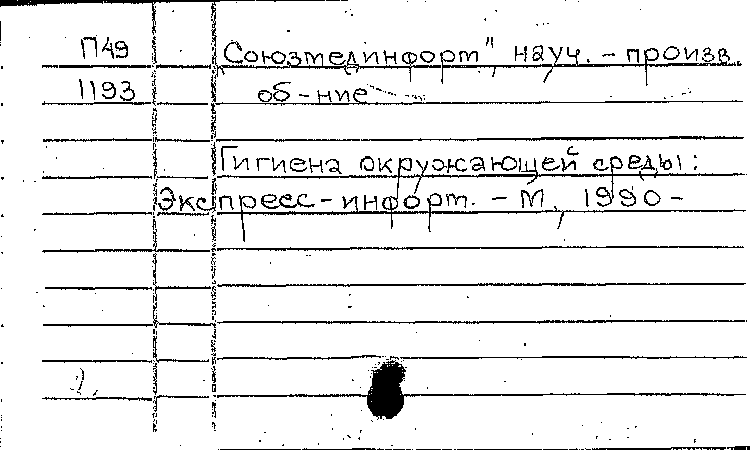 П49 „Союзмединформ" науч. - произв.
1193 об-ние
Гигиена окружающей среды:
Экспресс-информ. - М., 1990-